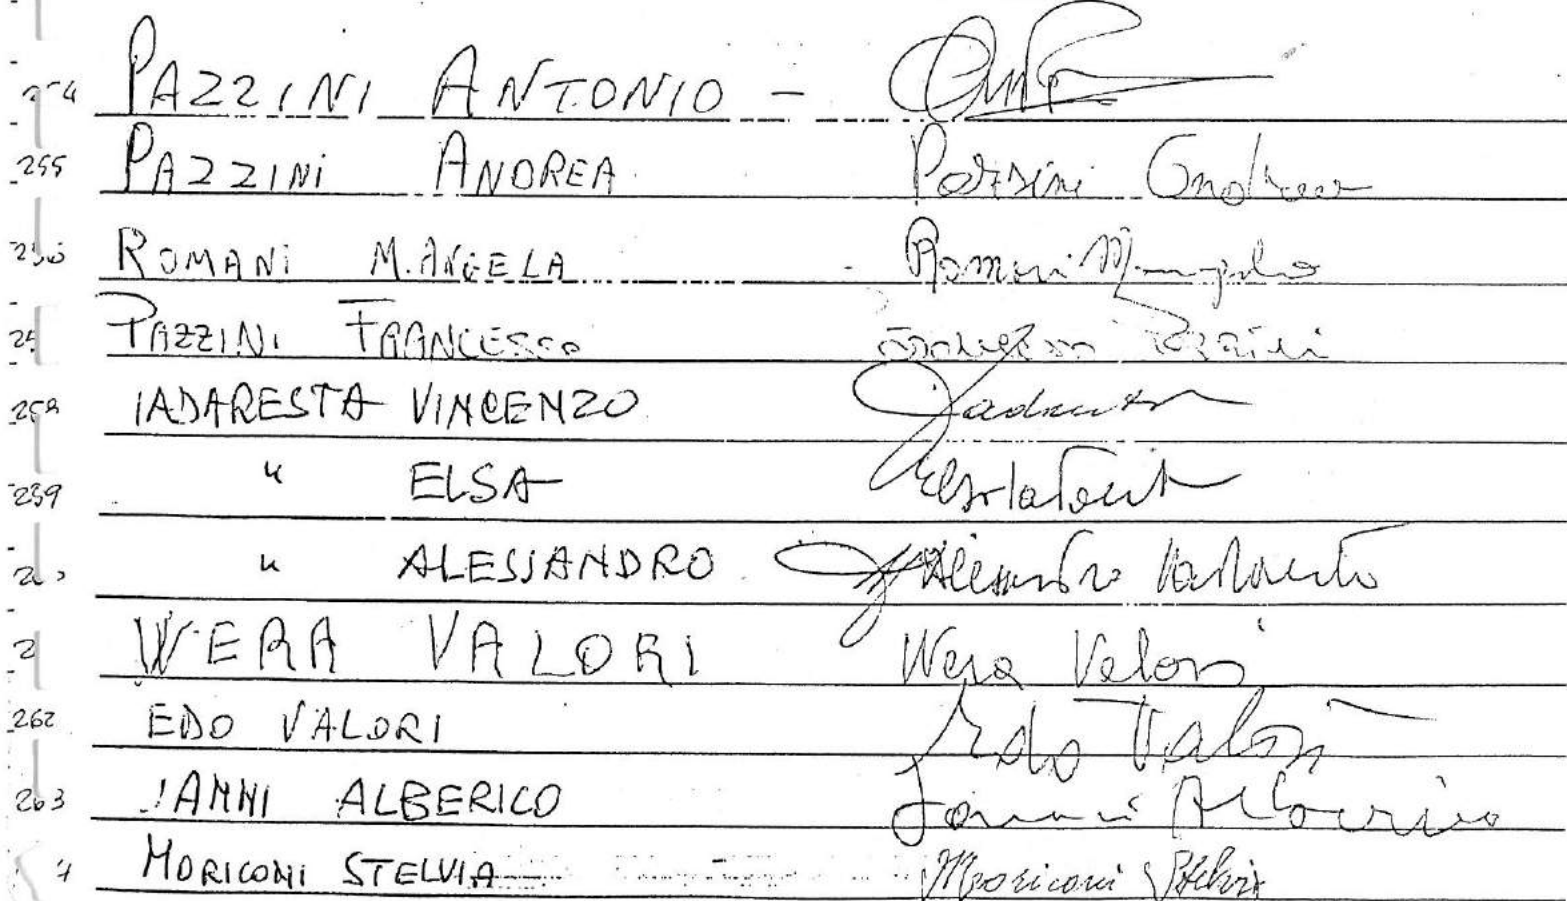 PAZZINI ANTONIO -
255 PAZZINI ANDREA Pazzini Andrea
ROMANI M. ANGELA Romani M. Angela
PAZZINI FRANCESCO Francesco Pazzini
258 IADARESTA VINCENZO
259 " ELSA
" ALESSANDRO Alessandro
WERA VALORI Wera Valori
262 EDO VALORI Edo Valori
263 IANNI ALBERICO Ianni Alberico
MORICONI STELVIA Moriconi Stelvia